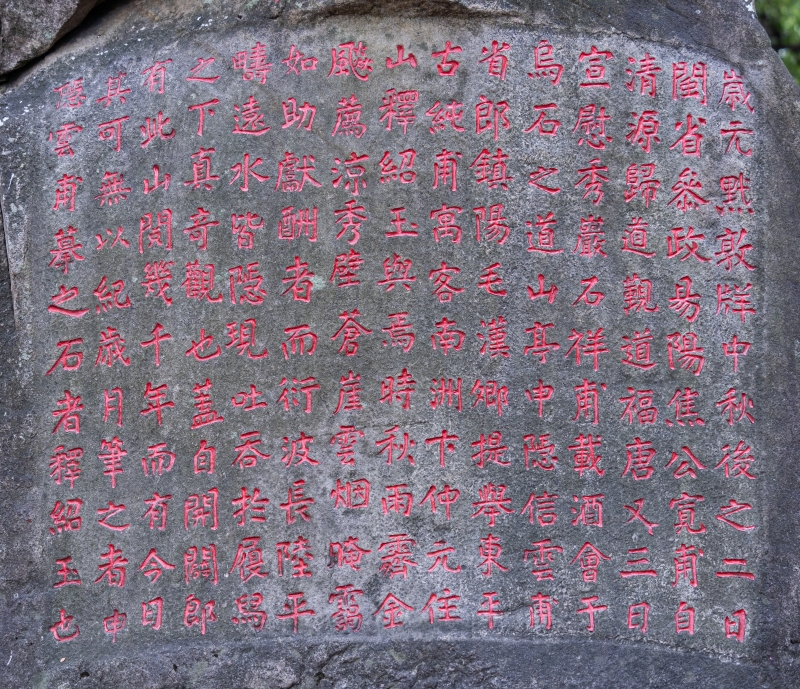 歲元黓敦牂中秋後之二日
閩省叅政昜陽焦公寬甫自
清源歸道觀道福唐又三日
宣慰秀巖石祥甫載酒會于
烏石之道山亭申隐信雲甫
省郎鎮陽毛漢卿提舉東平
古純甫寓客南洲卞仲元住
山釋紹玉與焉時秋雨霽金
颷薦凉秀壁蒼崖雲烟晻靄
如助獻酬者而衍波長陸平
疇遠水皆隠現吐吞扵履舄
之下真奇觀也蓋自開闢郎
有此山閱幾千年而有今日
其可無以紀歲月筆之者申
隠雲甫摹之石者釋紹玉也